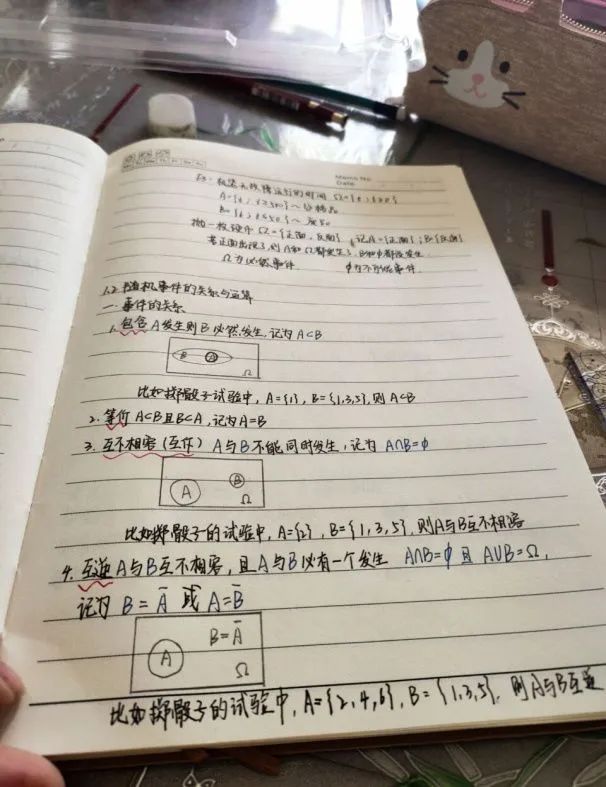 Memo No.
Date
Mo Tu We Th Fr Sa Su
Ex: 机器无故障运行的时间 Ω={t, t≥0}
A={t, t≥500}~合格品
B={t, t<50}~废品
抛一枚硬币 Ω={正面, 反面} 记A={正面}, B={反面}
若正面出现了, 则A和Ω都发生了, B和ϕ都没发生
Ω为必然事件 ϕ为不可能事件.
1.2 随机事件的关系与运算
一. 事件的关系
1. 包含 A发生则B必然发生, 记为A⊂B
B A
Ω
比如掷骰子试验中, A={1}, B={1,3,5}, 则A⊂B
2. 等价 A⊂B且B⊂A, 记为A=B
3. 互不相容(互斥) A与B不能同时发生, 记为 A∩B=ϕ
A B
Ω
比如掷骰子的试验中, A={2}, B={1,3,5}, 则A与B互不相容
4. 互逆 A与B互不相容, 且A与B必有一个发生 A∩B=ϕ 且 A∪B=Ω,
记为 B=A̅ 或 A=B̅
A B=A̅
Ω
比如掷骰子的试验中, A={2,4,6}, B={1,3,5}, 则A与B互逆